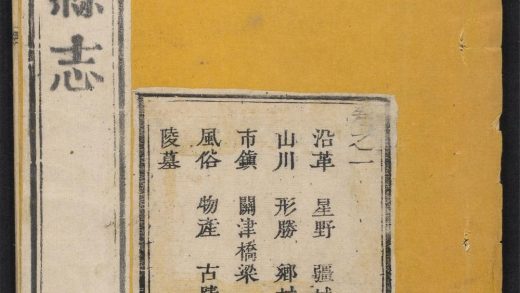 縣志
卷之一
沿革 星野 疆域
山川 形勝 鄉村
市鎮 關津橋梁
風俗 物產 古蹟
陵墓